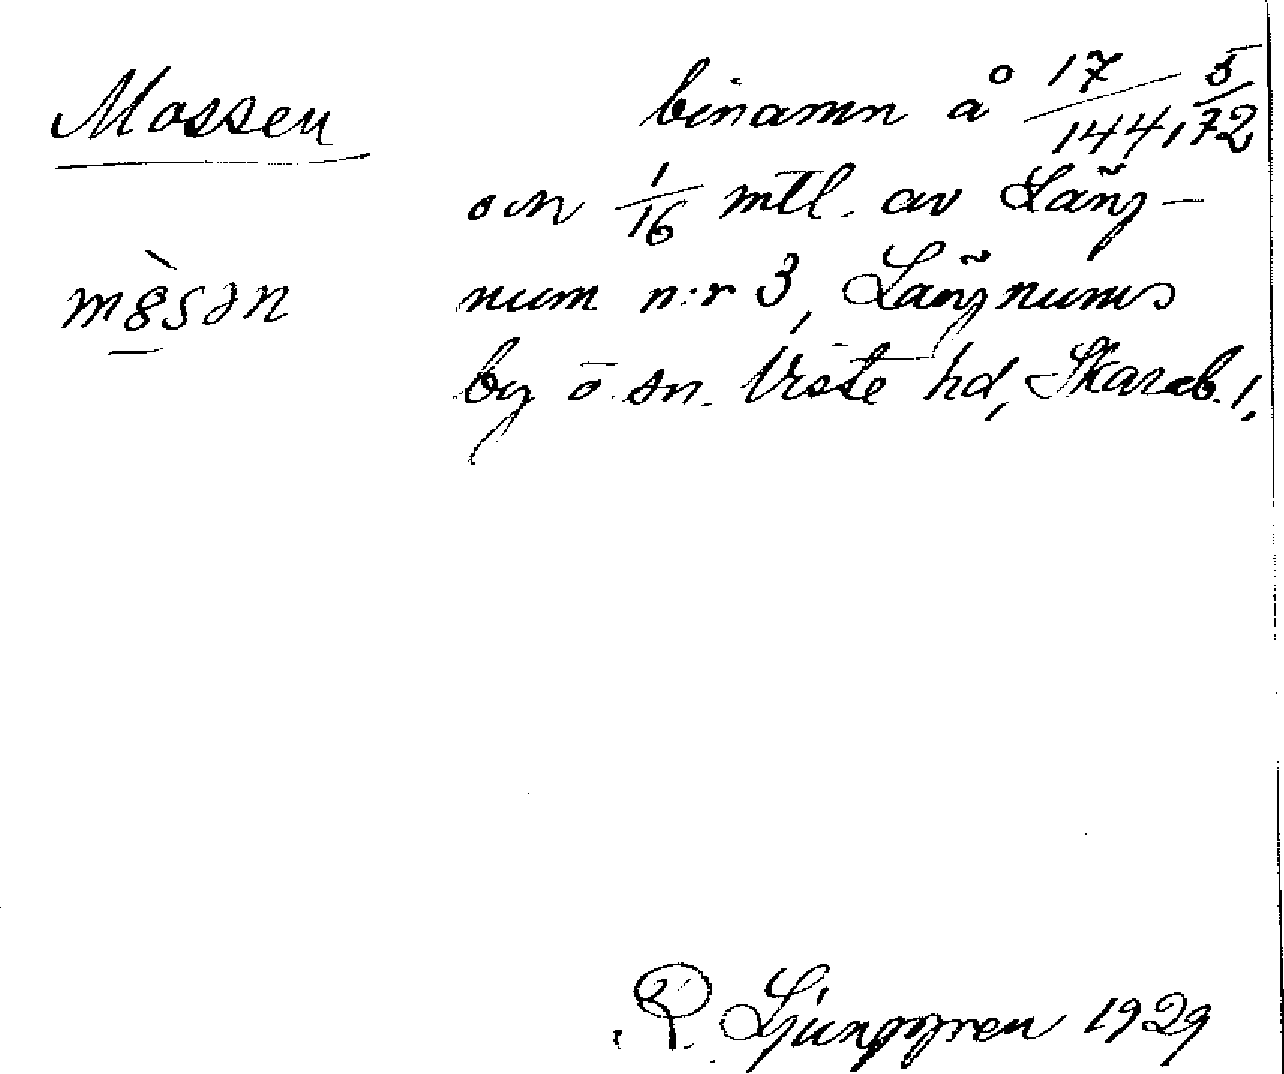 Mossen binamn å 17/144, 5/72
och 1/16 mtl. av Läng-
num n:r 3, Längnums
by o. sn. Viste hd, Skarab. l.
R. Ljunggren 1929